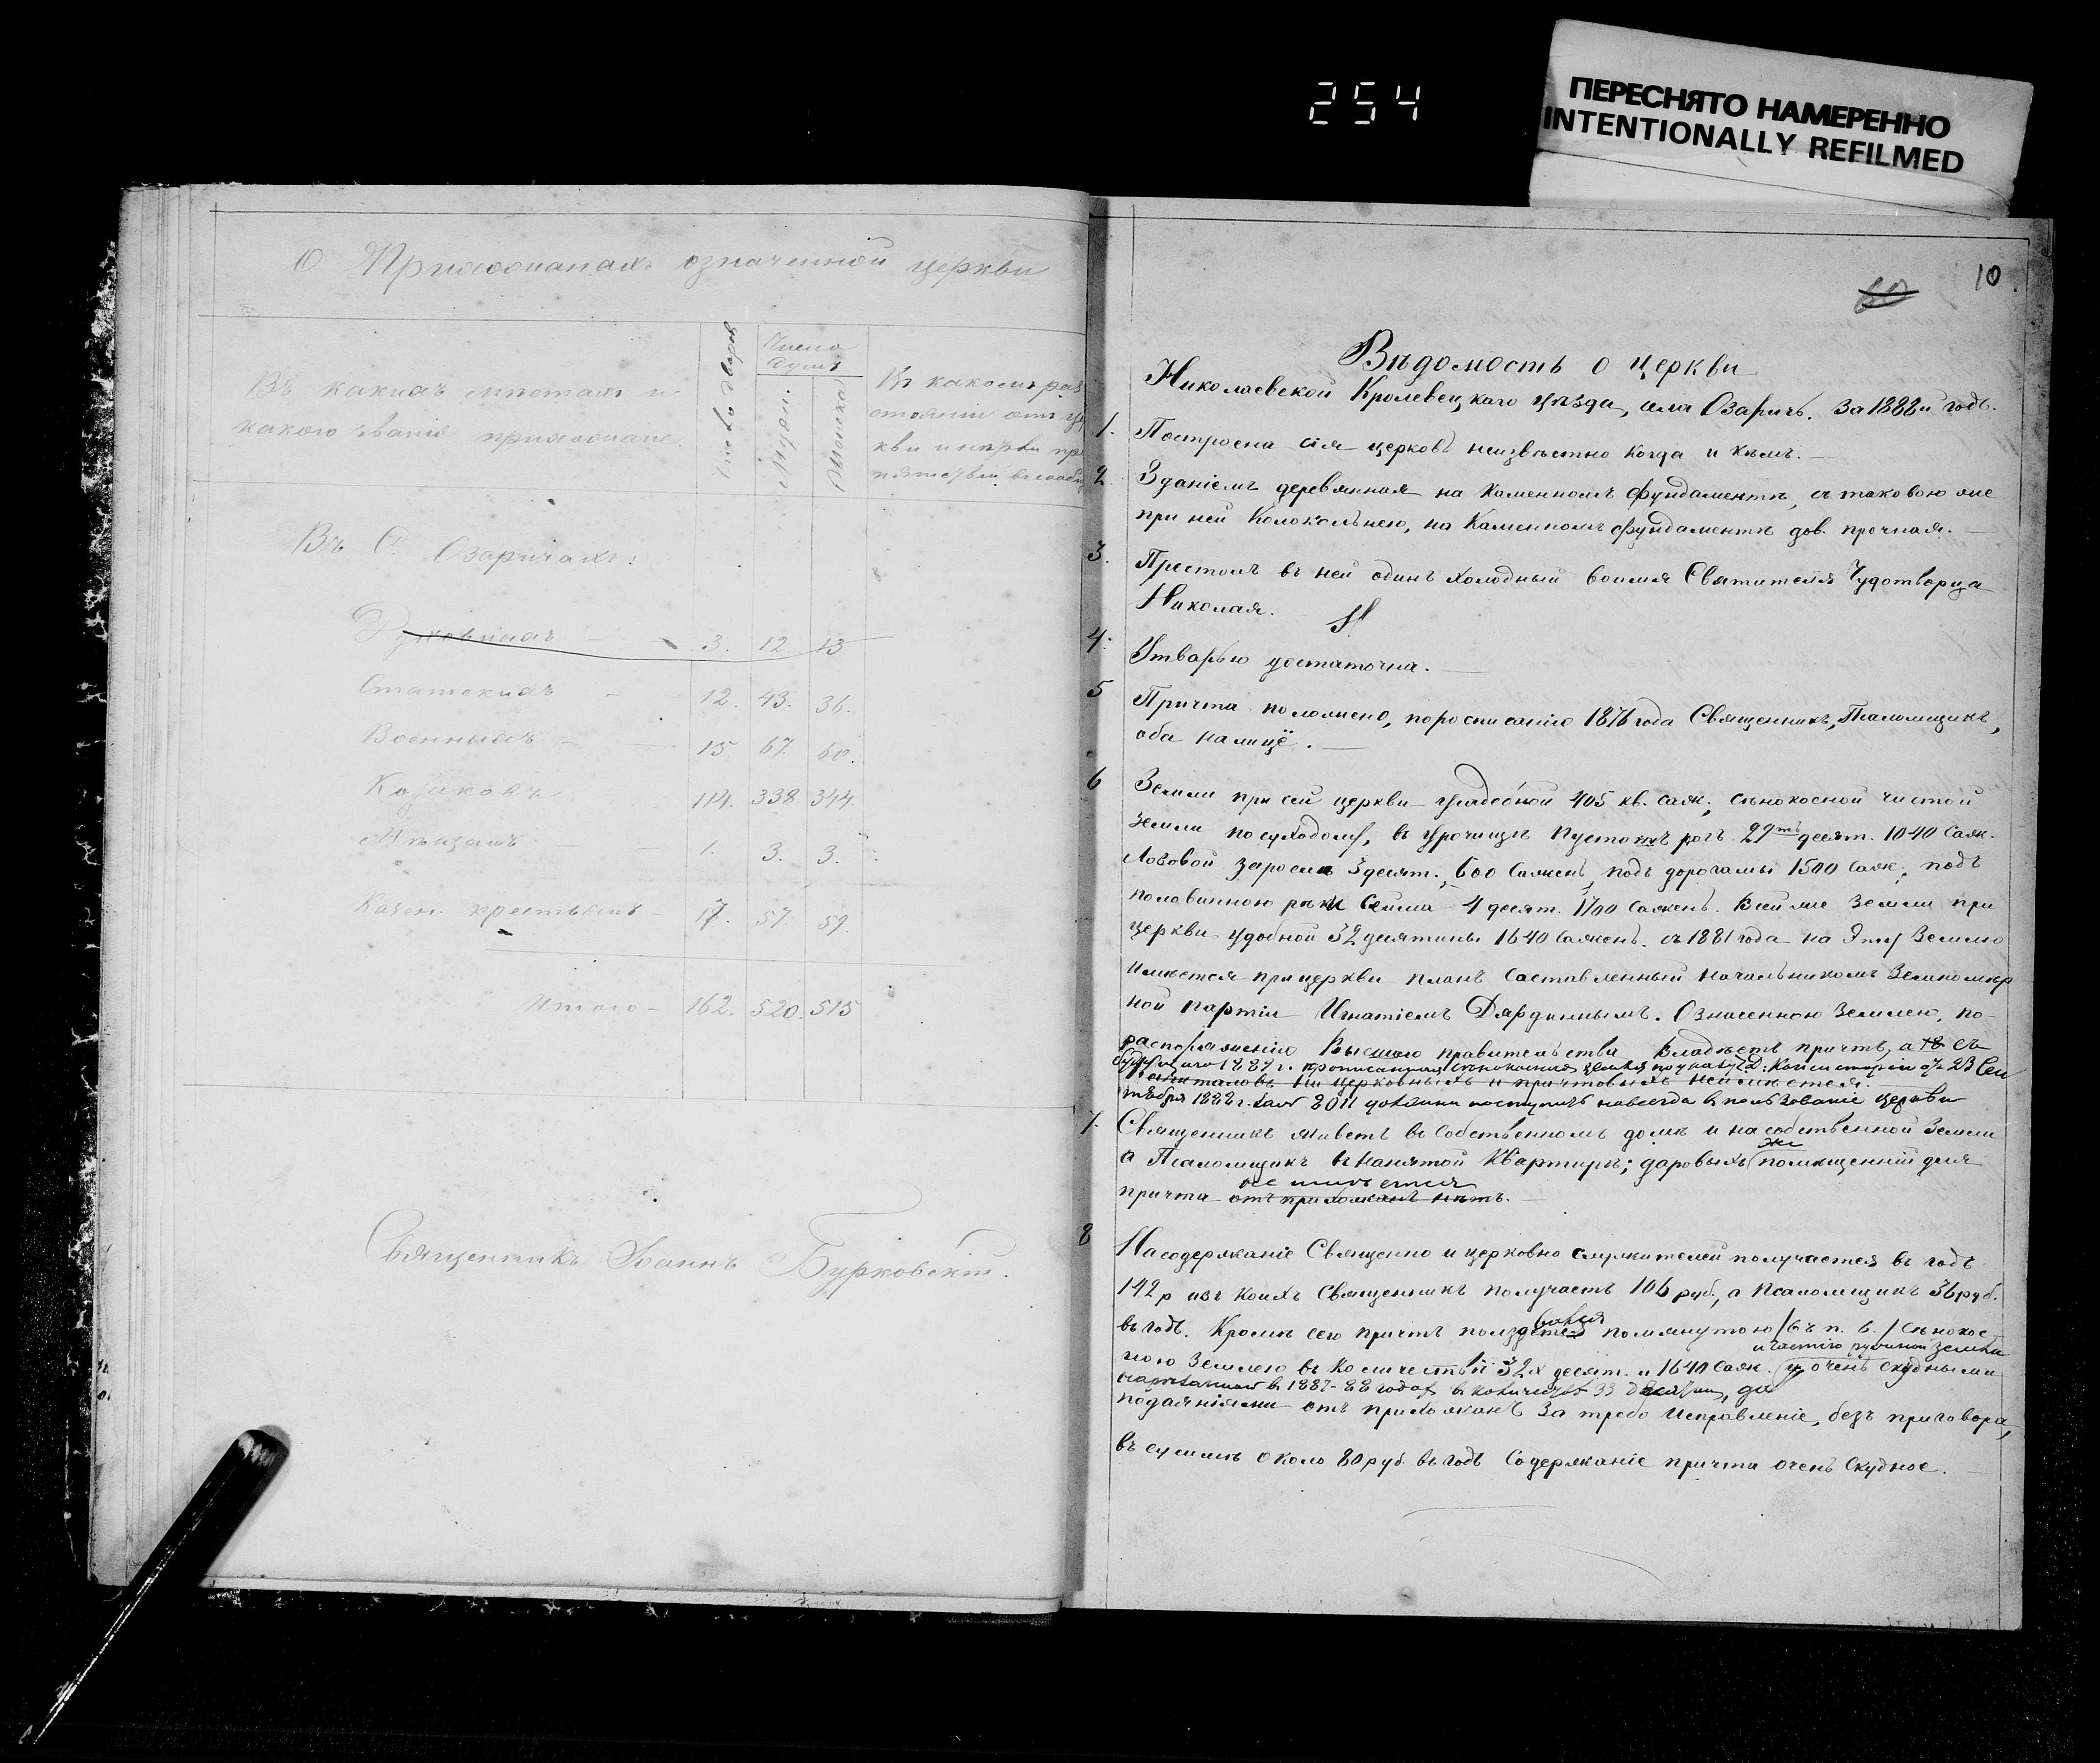 254
ПЕРЕСНЯТО НАМЕРЕННО
INTENTIONALLY REFILMED
О Прихожанахъ означенной церкви
Въ какихъ мѣстахъ и
какого званія прихожане.
Число дворовъ
Число
душъ
Мужск.
Женска
Въ какомъ раз
стояніи отъ це
кви и нѣтъ ли пр
пятствій въ сооб
Въ С. Озаричахъ:
Духовныхъ – 3. 12. 13
Статскихъ – 12. 43. 36.
Военныхъ – 15. 67. 60.
Козаковъ 114. 338 344.
Мѣщанъ – 1. 3. 3.
Казен. крестьянъ – 17. 57. 59.
Итого – 162. 520. 515
Священникъ Іоаннъ Бурковскій.
10
Вѣдомость о церкви
Николаевской Кролевецкаго уѣзда, села Озаричъ. За 1888й годъ.
1. Построена сія церковь неизвѣстно когда и кѣмъ. –
2 Зданіемъ деревянная на каменномъ фундаментѣ, съ таковою же
при ней колокольнею, на каменномъ фундаментѣ дов. прочная. –
3. Престолъ въ ней одинъ холодный во имя Святителя Чудотворца
Николая.
4. Утварью достаточна. –
5 Причта положено, по росписанію 1876 года Священникъ, Псаломщикъ,
оба налицѣ. –
6 Земли при сей церкви усадебной 405 кв. саж.; сѣнокосной чистой
земли по суходолу, въ урочищѣ Пустомъ рогъ 29ть десят. 1040 саж.
Лозовой заросли 3 десят., 600 сажень, подъ дорогами 1500 саж., подъ
половинною рѣки Сейма 4 десят. 1700 сажень. Всей же земли при
церкви удобной 32 десятины 1640 сажень. съ 1881 года на эту землю
имѣется при церкви планъ составленный начальникомъ землемѣр
ной партіи Игнатіемъ Дардиннымъ. Означенною землею, по
распоряженію Высшаго правительства владѣетъ причтъ, а съ
будущаго 1889 г. прописанная сѣнокосная земля по указу Д. Консисторіи отъ 23 Сен
капиталовъ ни церковныхъ и причтовыхъ не имѣется.
тября 1888 г. за № 8011 должна поступить навсегда въ пользованіе церкви
7. Священникъ живетъ въ собственномъ домѣ и на собственной земли
а Псаломщикъ въ нанятой квартирѣ; даровыхъ же помѣщеній для
причта отъ прихожанъ нѣтъ. –
не имѣется
8 На содержаніе Священно и церковно служителей получается въ годъ
142 р изъ коихъ Священникъ получаетъ 106 руб., а Псаломщикъ 36 руб.
въ годъ. Кромѣ сего причтъ пользовался помянутою /въ п. 6./ сѣнокос–
ною землею въ количествѣ 32х десят. и 1640 саж. и очень скудными
и частію ружной земли
въ 1887-88 годах в количестве 33 десятин, да
подаяніями отъ прихожанъ за требо исправленіе, безъ приговора,
въ суммѣ около 80 руб. въ годъ Содержаніе причта очень скудное.